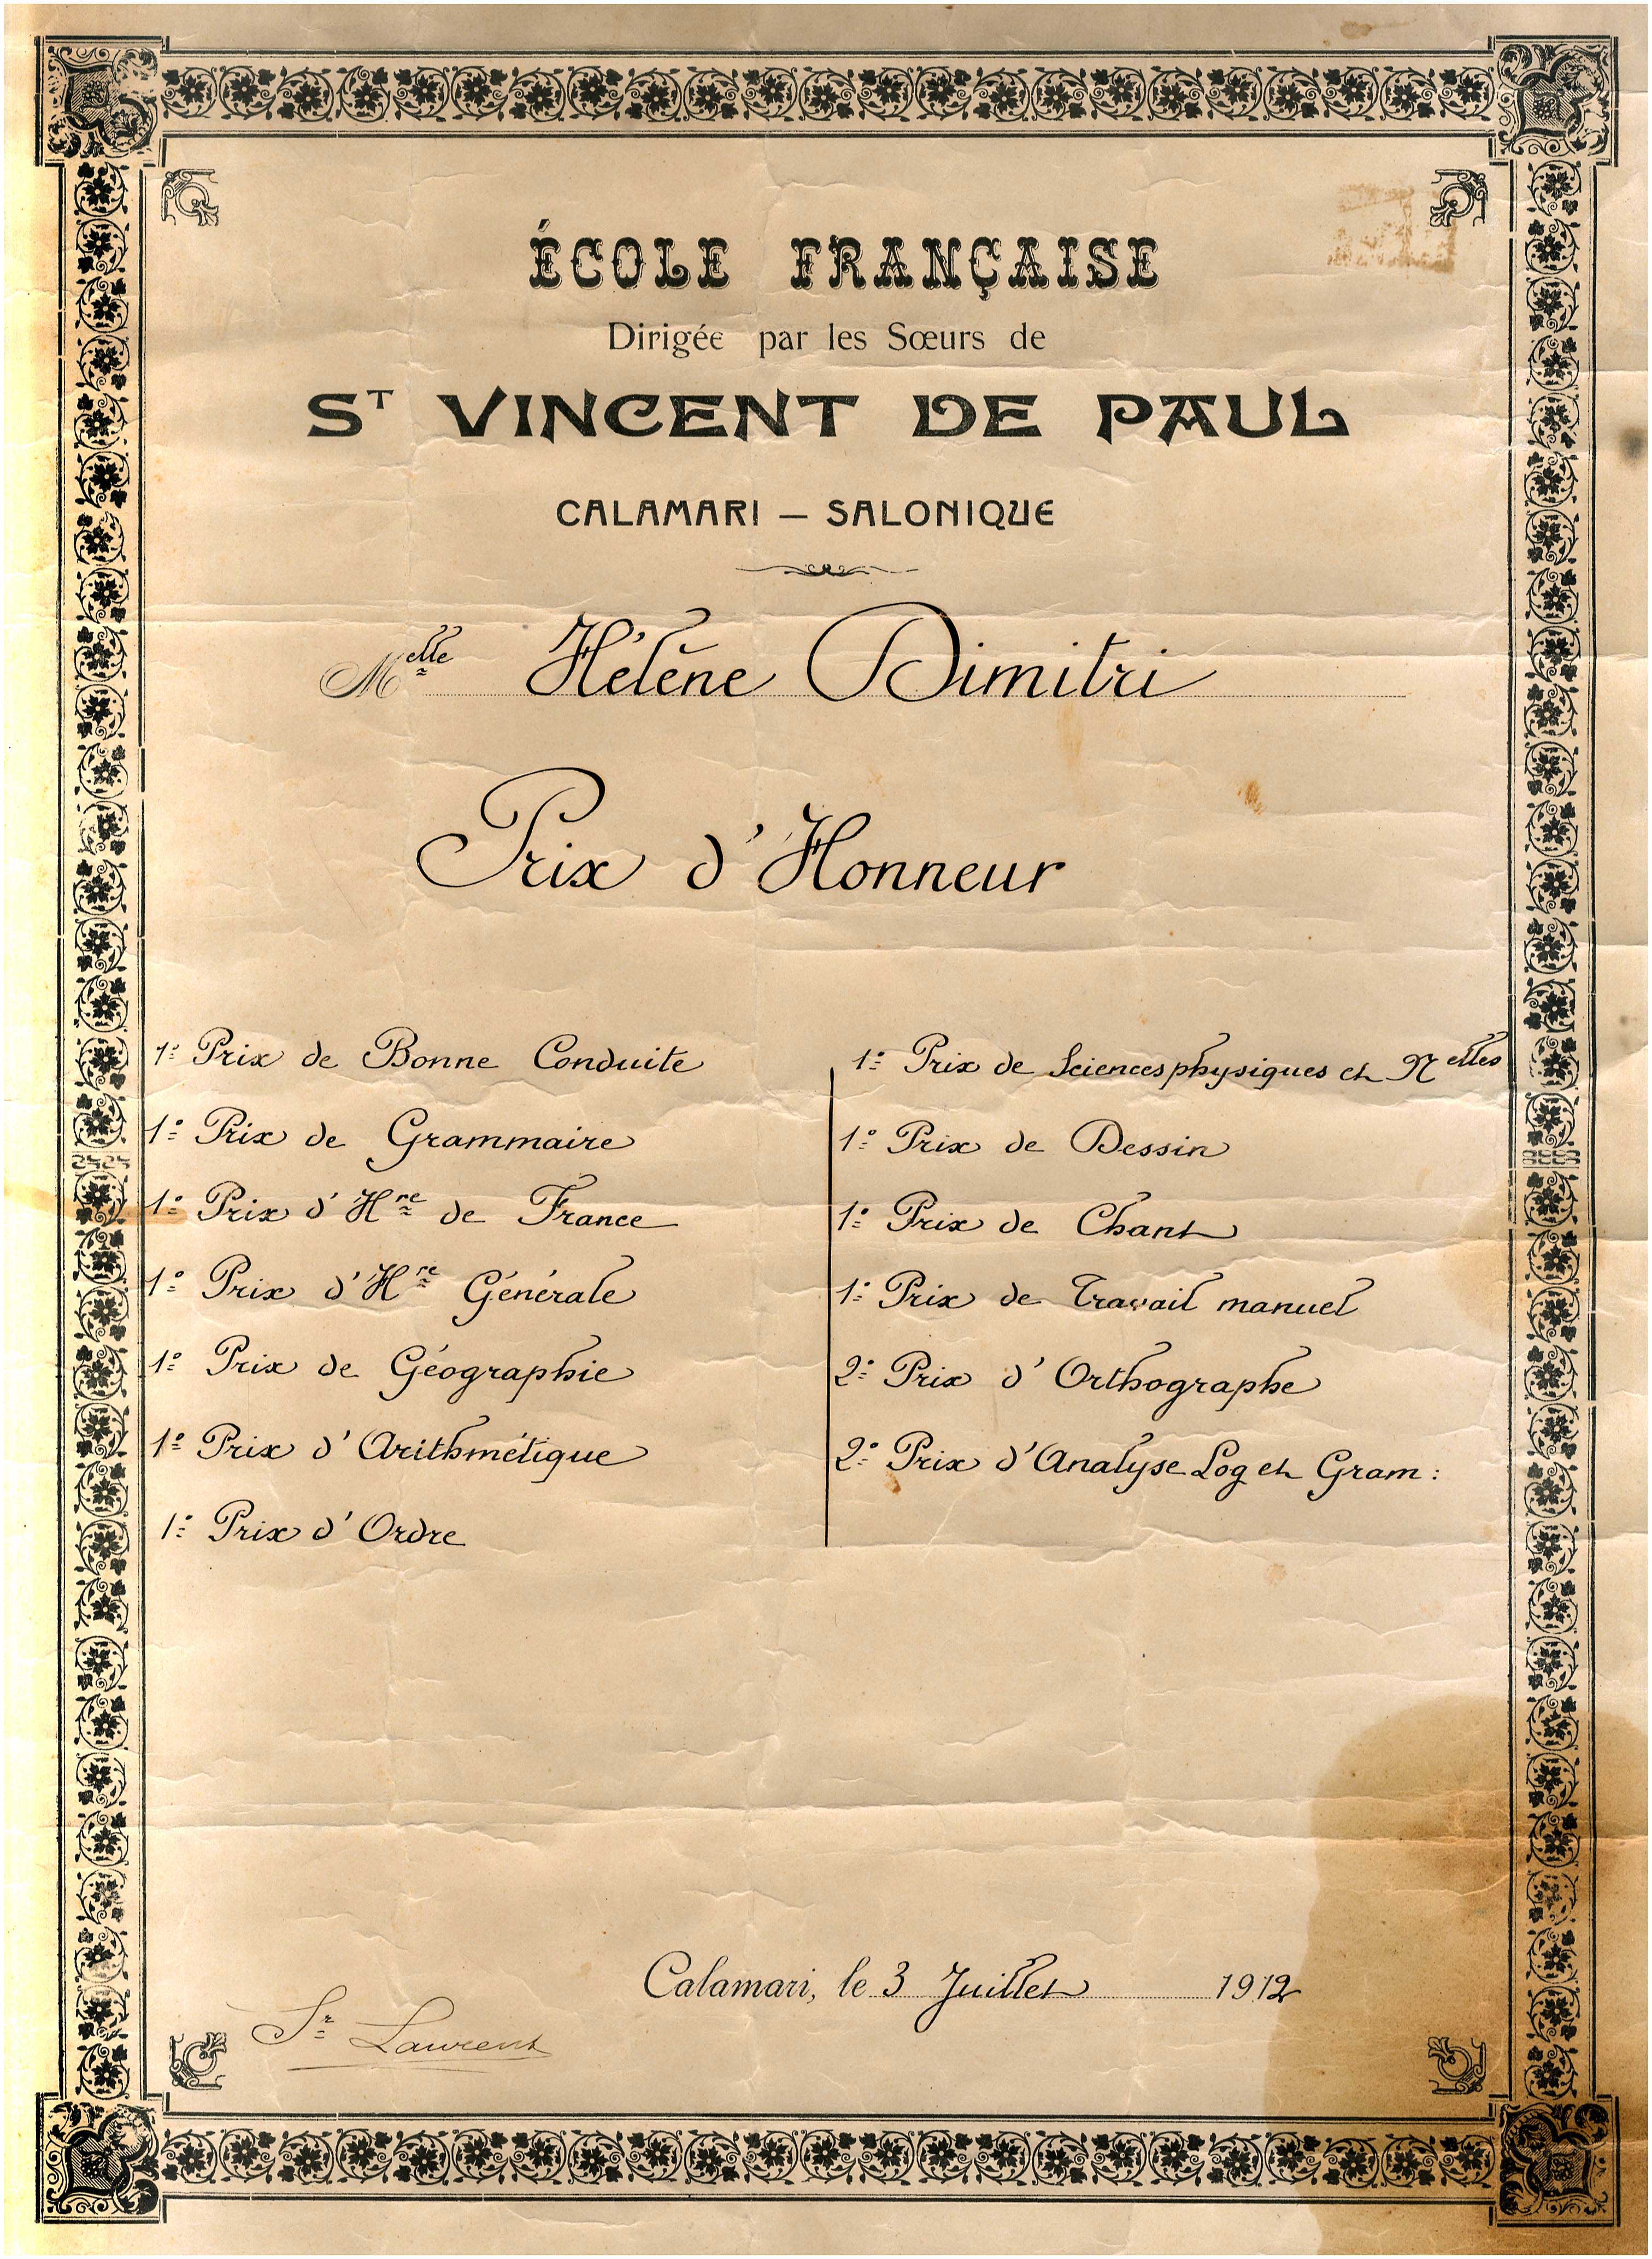 ÉCOLE FRANÇAISE
Dirigée par les Sœurs de
ST VINCENT DE PAUL
CALAMARI — SALONIQUE
Melle Hélène Dimitri
Prix d'Honneur
1º Prix de Bonne Conduite
1º Prix de Grammaire
1º Prix d'Hre de France
1º Prix d'Hre Générale
1º Prix de Géographie
1º Prix d'Arithmétique
1º Prix d'Ordre
1º Prix de Sciences physiques et Nelles
1º Prix de Dessin
1º Prix de Chant
1º Prix de Travail manuel
2º Prix d'Orthographe
2º Prix d'Analyse Log et Gram:
Calamari, le 3 Juillet 1912
Sr Laurent